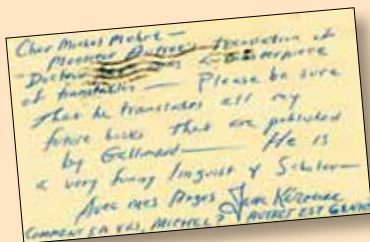 Cher Michel Mohrt —
— Monsieur Autret's translation of
Doctor Sax was a masterpiece
of translation — Please be sure
that he translates all my
future books that are published
by Gallimard — He is
a very funny linguist & Scholar —
Avec mes Anges, Jack Kerouac
COMMENT ÇA VAS, MICHEL? AUTRET EST GENIUS